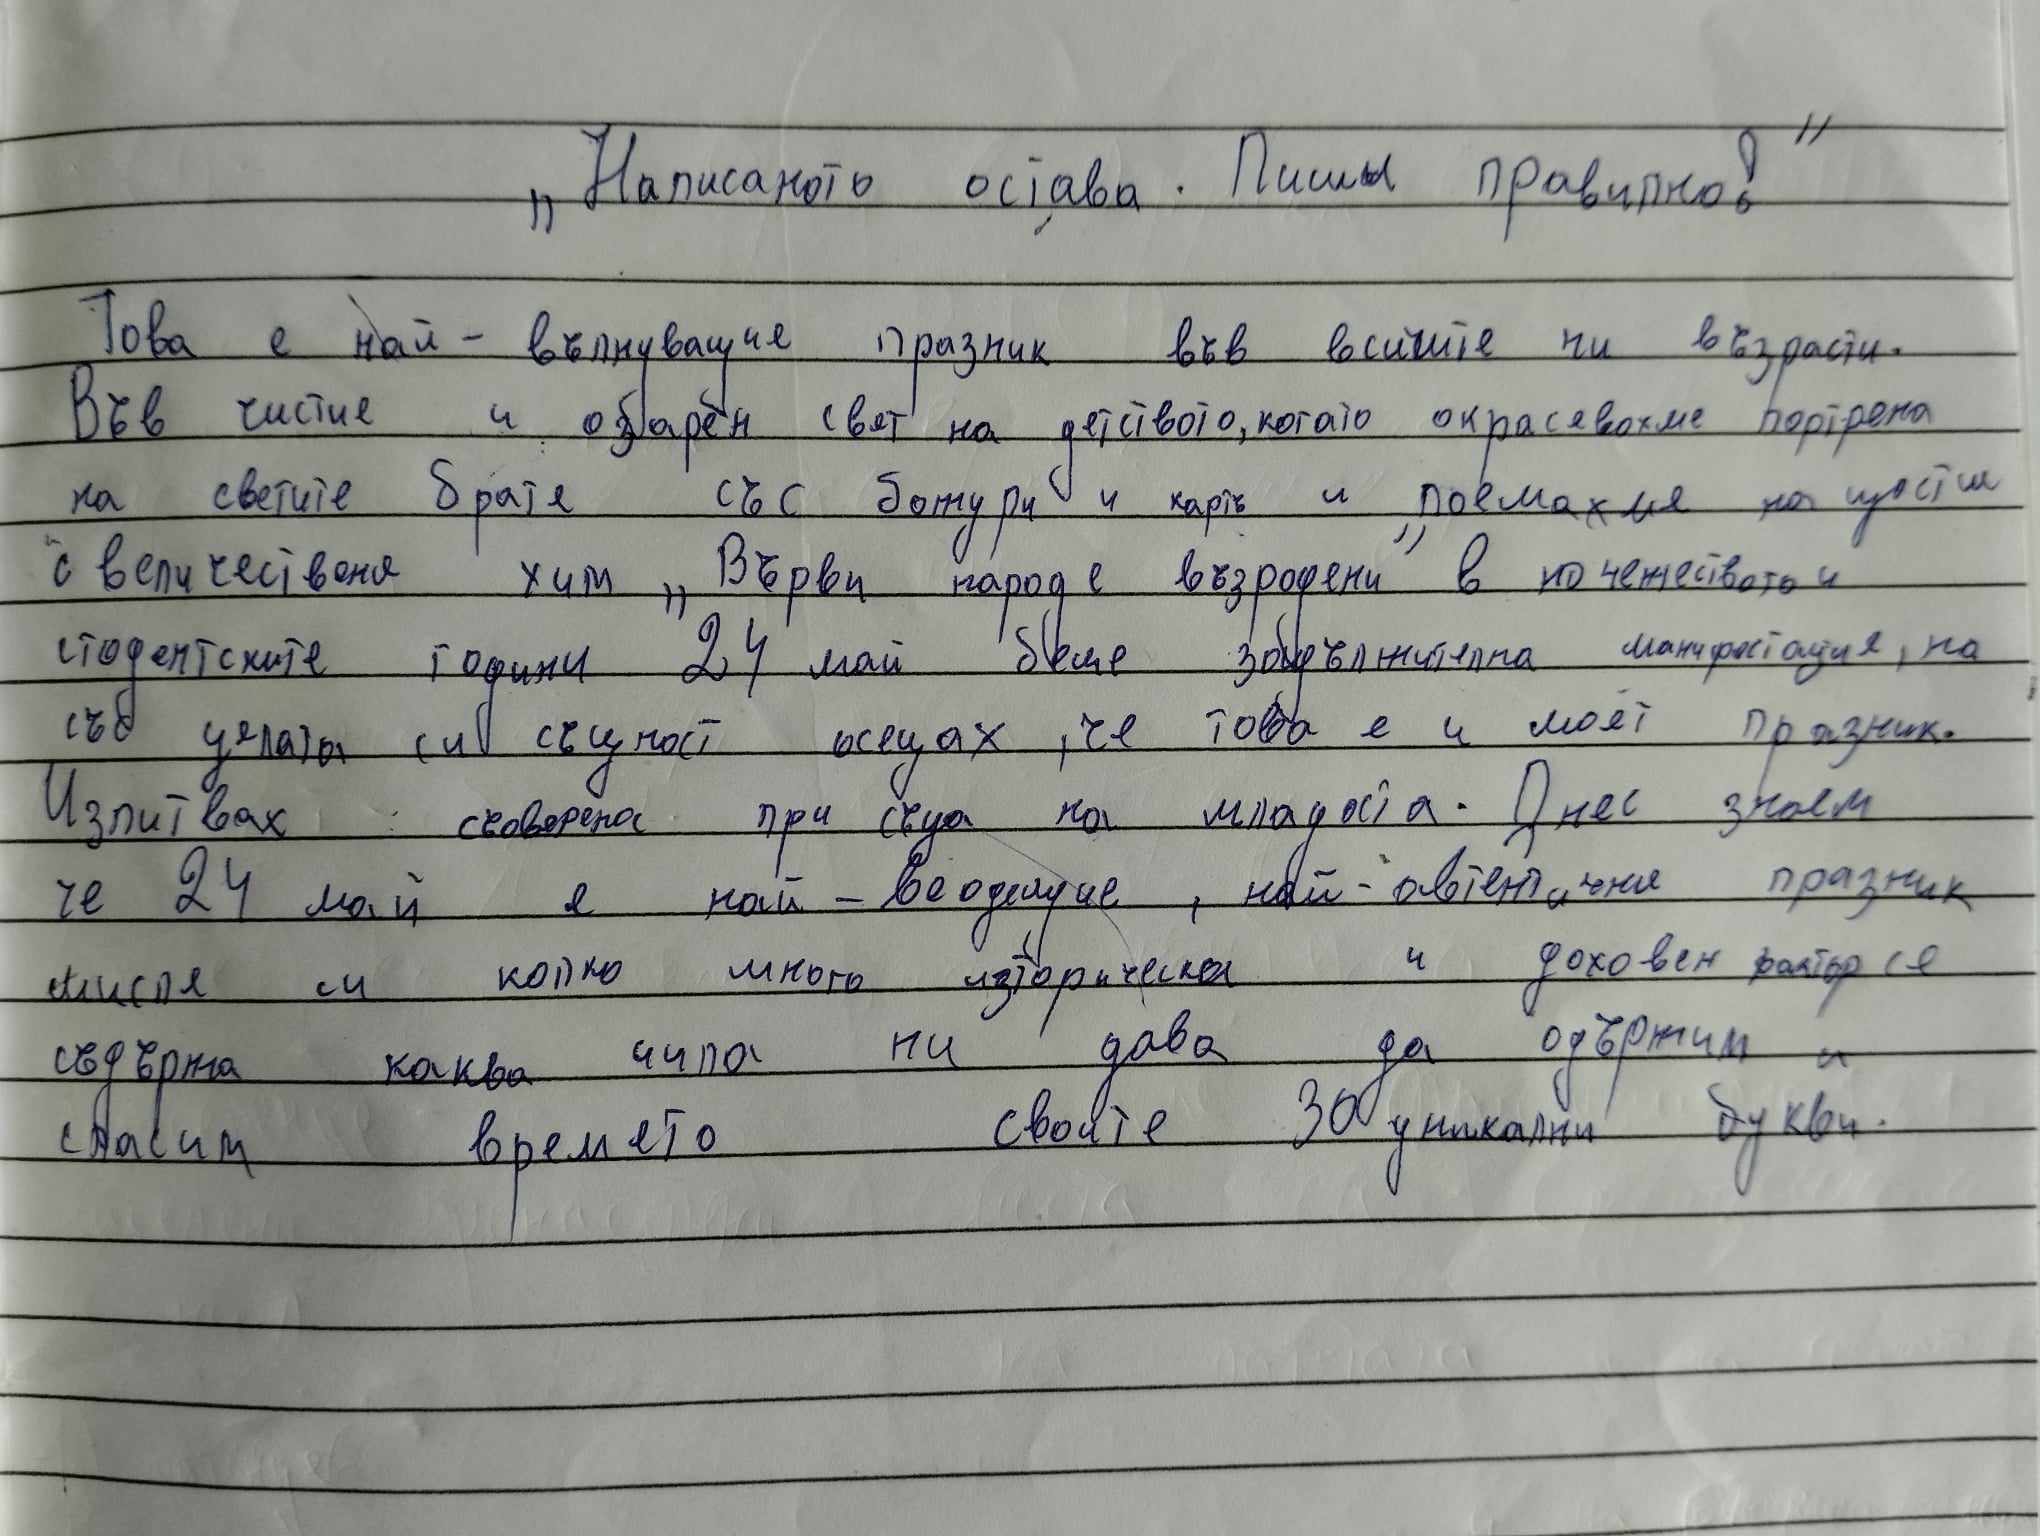 „Написаното остава. Пиши правилно!"
Това е най-вълнуващие празник във всичите ни възрасти.
Във чистие и озарен свят на детството, когато окрасявахме портрена
на светите братя със божури и карти и поемахме на щастии
с величественя хим „Върви народе възродени" в ночежеството и
стодентските години 24 май беше задължителна манифестация, на
със цялата си същност осещах, че това е и моят празник.
Изпитвах съоверена при съца на младоста. Днес знаем
че 24 май е най-веодещие, най-автентичния празник
мисля си колко много изторическа и доховен фактор се
съдържа каква чила ни дава да одържим и
спасим времято своите 30 уникални букви.